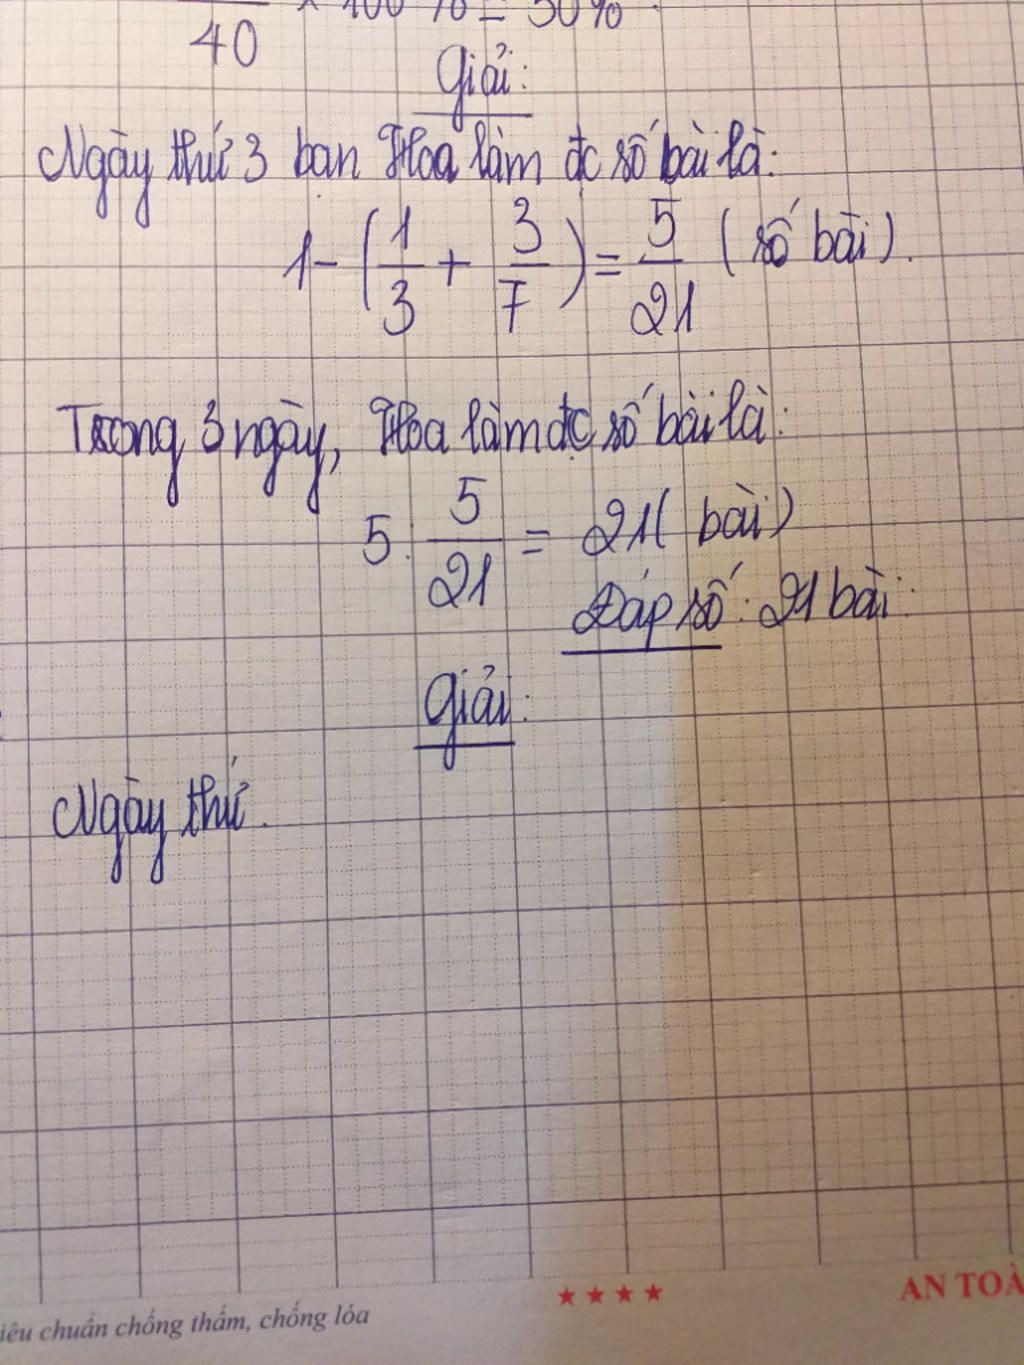 40 × 100% = 30%
Giải:
Ngày thứ 3 bạn Hoa làm đc số bài là:
1 - (1/3 + 3/7) = 5/21 (số bài).
Trong 3 ngày, Hoa làm đc số bài là:
5 : 5/21 = 21 (bài)
Đáp số: 21 bài.
Giải:
Ngày thứ
iêu chuẩn chống thấm, chống lóa
★★★★
AN TOÀ